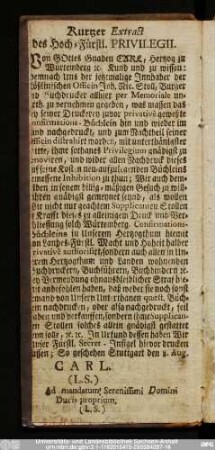 Kurtzer Extract
des Hoch-Fürstl. PRIVILEGII.
Von GOttes Gnaden CARL, Hertzog zu
Würtemberg ꝛc. Kund und zu wissen:
demnach Uns der jetzmalige Innhaber der
Officin Joh. Nic. Stoll, Burger
und Buchdrucker allhier per Memoriale
zu vernehmen gegeben, was massen das
bey seiner Druckerey zuvor privativè gewesene
Confirmations-Büchlein hin und wieder in
und nachgedruckt, und zum Nachtheil seiner
Officin distrahirt worden, mit unterthänigster
Bitte, ihme sothanes Privilegium gnädigst zu
renoviren, und wider allen Nachdruck dieses
Büchlein
Inhibition zu thun; Wir auch demselben
in seinem billig-mäßigen Gesuch zu willfahren
gnädigst gemeynet seynd, als wollen
Wir nicht nur gedachten Supplicanten Stollen
Krafft dieses zu alleinigem Druck und Verschliessung
solch Würtemberg. Confirmations-
Büchleins in Unserem Hertzogthum hiemit
von Landes-Fürstl. Macht und Hoheit halber
privativè authorisirt, sondern auch allen in Unserem
Hertzogthum und Landen wohnenden
Buchdruckern, Buchführern, Buchbindern ꝛc.
bey Vermeydung ohnausbleiblicher Straff hiemit
anbefohlen haben, daß weder sie noch sonst
jemand von Unsern Unterthanen quaest. Büchlein
nachdrucken, oder also nachgedruckt, feil
haben und verkauffen, sondern ihme Supplicanten
Stollen solches allein gnädigst gestattet
seyn solle, ꝛc. ꝛc. In Urkund dessen haben Wir
Unser Fürstl. Secret-Insigel hievor drucken
lassen; So geschehen Stuttgart den 8. Aug.
CARL.
(L.S.)
Ad mandatum Serenissimi Domini
Ducis proprium,
(L.S.)
Universitäts- und Landesbibliothek Sachsen-Anhalt